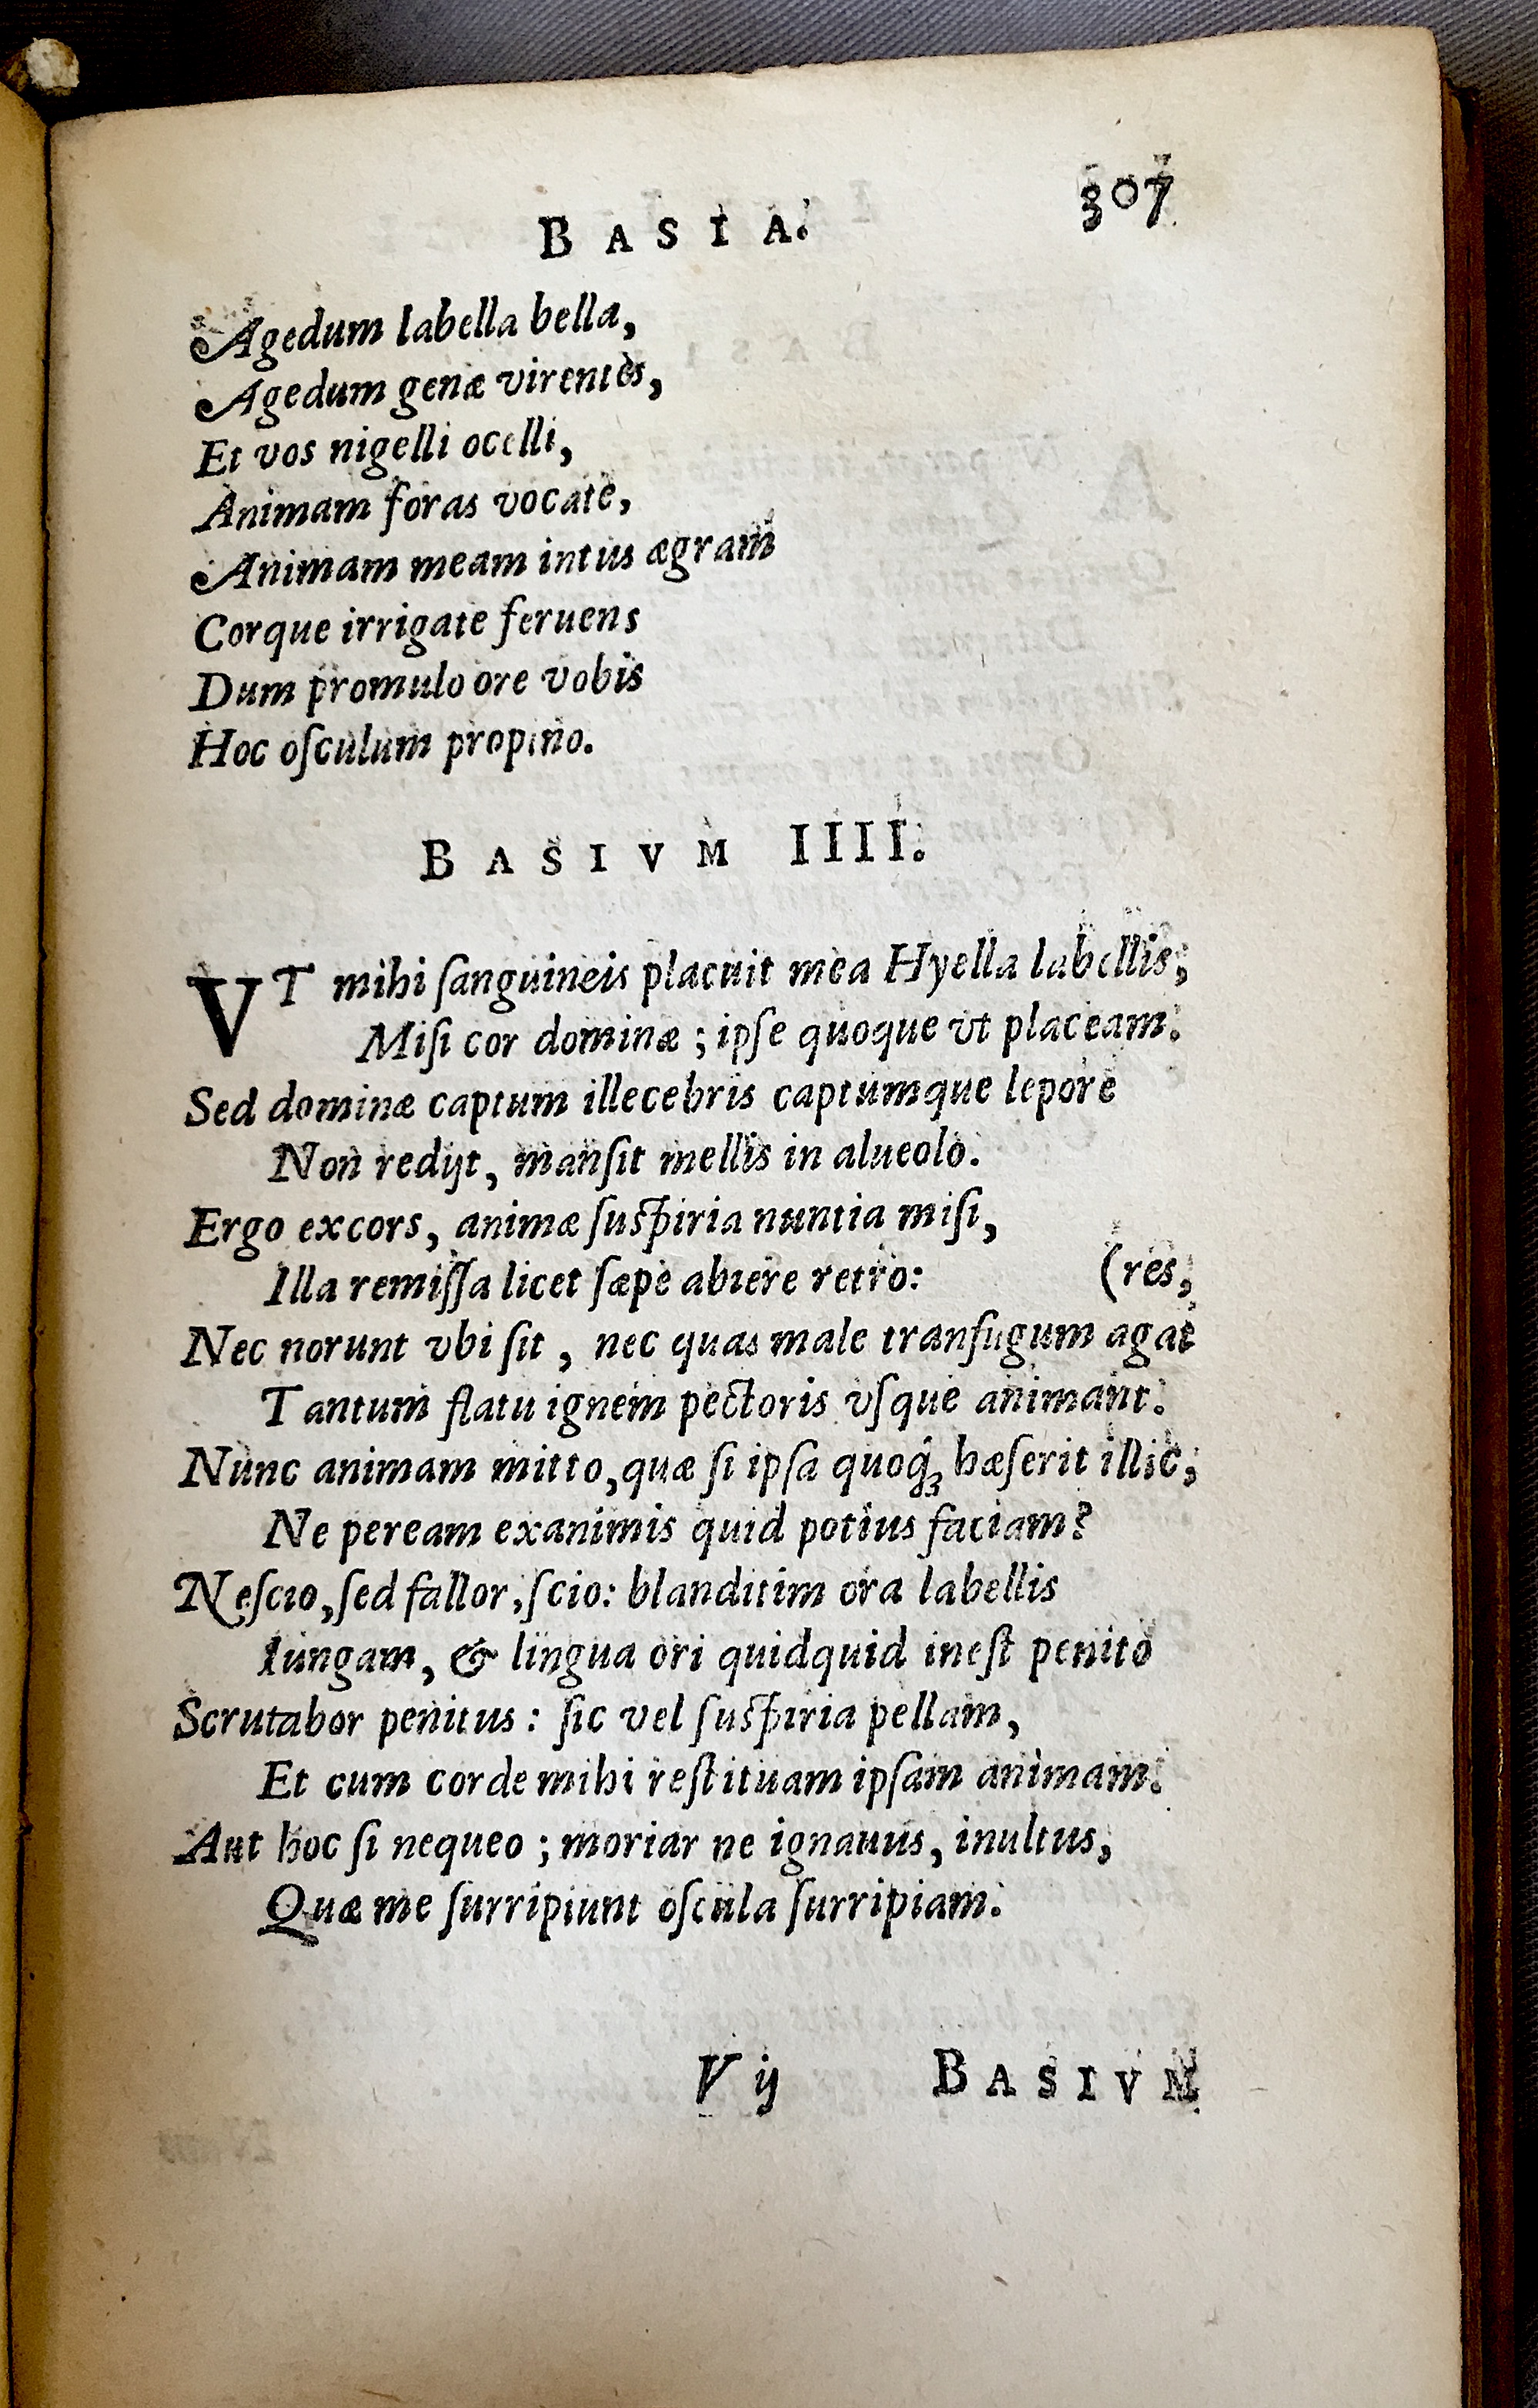 BASIA. 307
Agedum labella bella,
Agedum genæ virentes,
Et vos nigelli ocelli,
Animam foras vocate,
Animam meam intus ægram
Corque irrigate feruens
Dum promulo ore vobis
Hoc oſculum propino.
BASIVM IIII.
VT mihi ſanguineis placuit mea Hyella labellis,
Miſi cor dominæ ; ipſe quoque vt placeam.
Sed dominæ captum illecebris captumque lepore
Non redijt, manſit mellis in alueolo.
Ergo excors, animæ ſuſpiria nuntia miſi,
Illa remiſſa licet ſæpe abiere retro: (res,
Nec norunt vbi ſit , nec quas male tranſugum agat
Tantum flatu ignem pectoris vſque animant.
Nunc animam mitto, quæ ſi ipſa quoq; hæſerit illic,
Ne peream exanimis quid potius faciam?
Neſcio, ſed fallor, ſcio: blanditim ora labellis
Iungam, & lingua ori quidquid ineſt penito
Scrutabor penitus : ſic vel ſuſpiria pellam,
Et cum corde mihi reſtituam ipſam animam.
Aut hoc ſi nequeo ; moriar ne ignauus, inultus,
Quæ me ſurripiunt oſcula ſurripiam.
V ij BASIVM